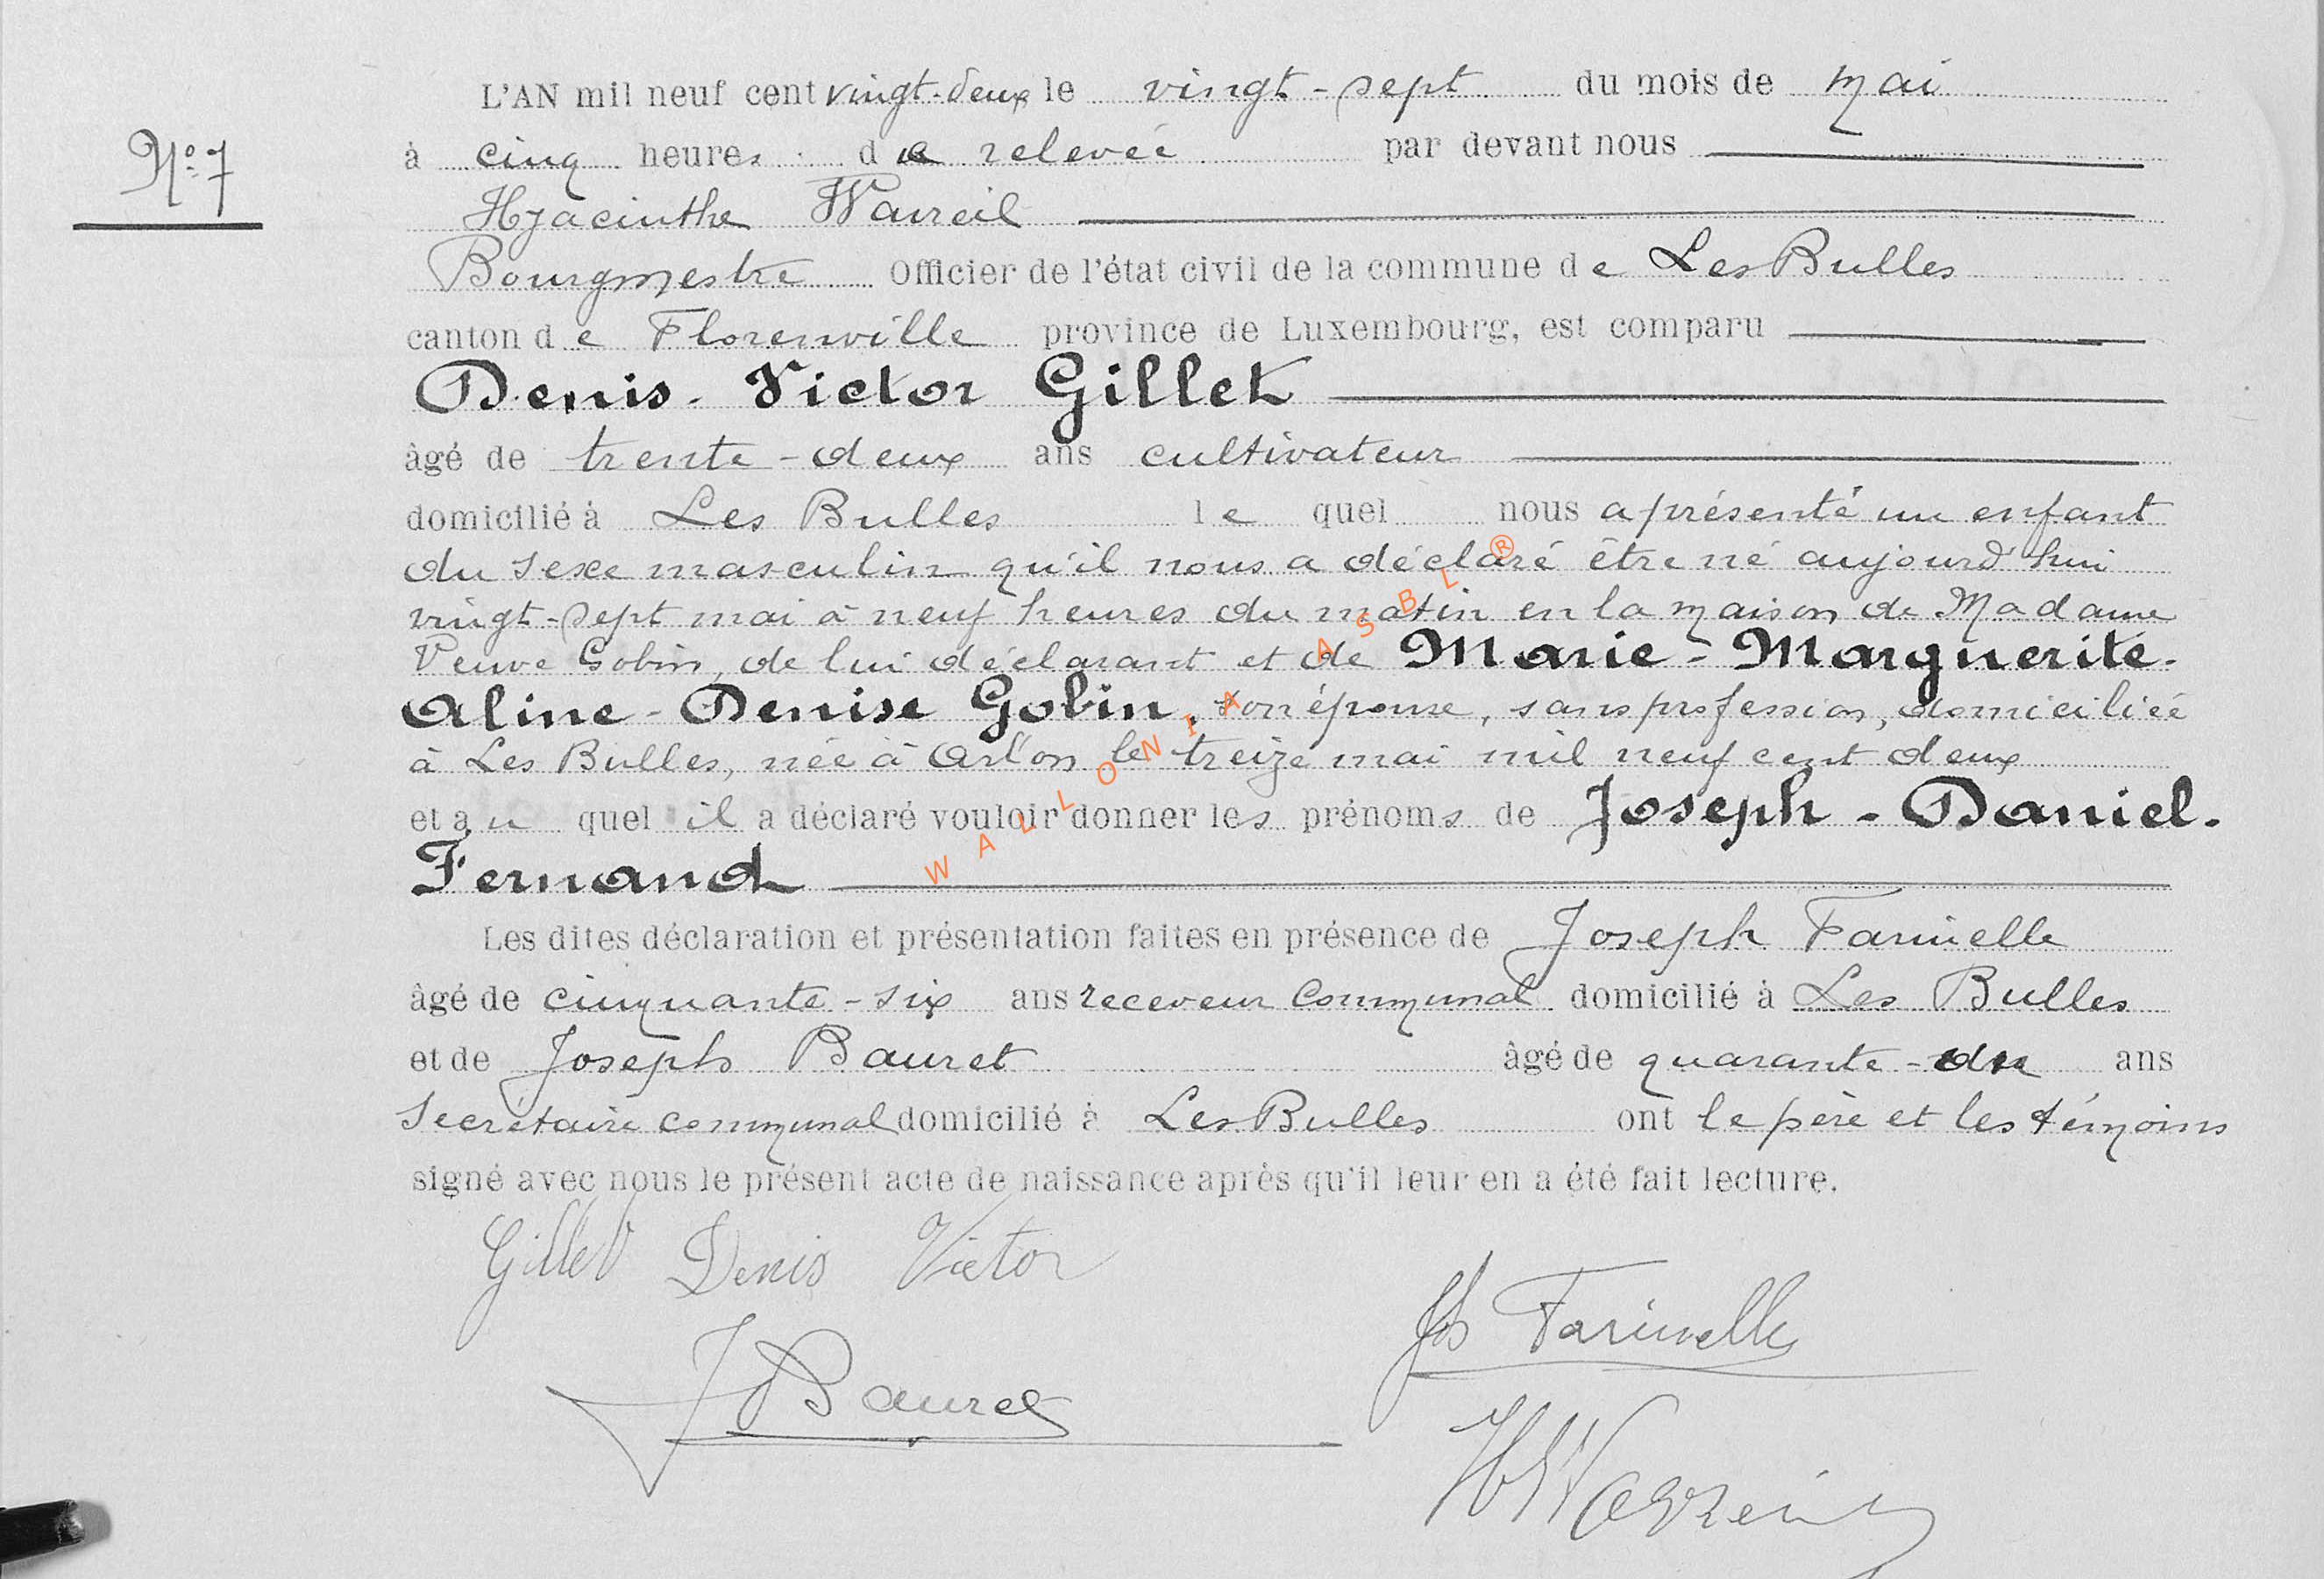 L'AN mil neuf cent vingt-deux le vingt-sept du mois de mai
N° 7
à cinq heures de relevée par devant nous
Hyacinthe Wavreil
Bourgmestre Officier de l'état civil de la commune de Les Bulles
canton de Florenville province de Luxembourg, est comparu
Denis-Victor Gillet
âgé de trente-deux ans cultivateur
domicilié à Les Bulles le quel nous a présenté un enfant
du sexe masculin qu'il nous a déclaré être né aujourd'hui
vingt-sept mai à neuf heures du matin en la maison de Madame
Veuve Gobin, de lui déclarant et de Marie-Marguerite-
Aline-Denise Gobin, son épouse, sans profession, domiciliée
à Les Bulles, née à Arlon le treize mai mil neuf cent deux
et au quel il a déclaré vouloir donner les prénoms de Joseph-Daniel-
Fernand
Les dites déclaration et présentation faites en présence de Joseph Farinelle
âgé de cinquante-six ans receveur communal domicilié à Les Bulles
et de Joseph Bauret âgé de quarante- ans
secrétaire communal domicilié à Les Bulles ont le père et les témoins
signé avec nous le présent acte de naissance après qu'il leur en a été fait lecture.
Gillet Denis Victor
Jos Farinelle
J Bauret
H Wavreil
WALLONIA ASBL ®